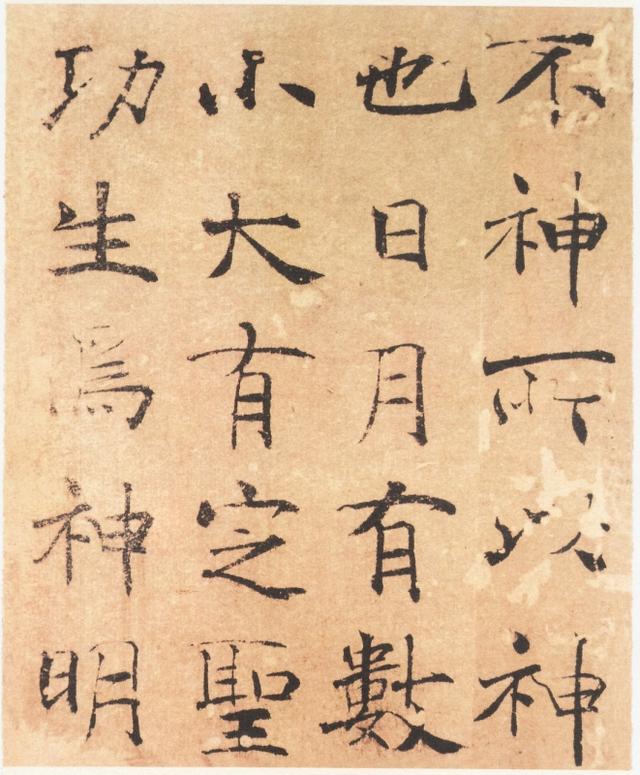 不神所以神
也日月有數
小大有定聖
功生為神明